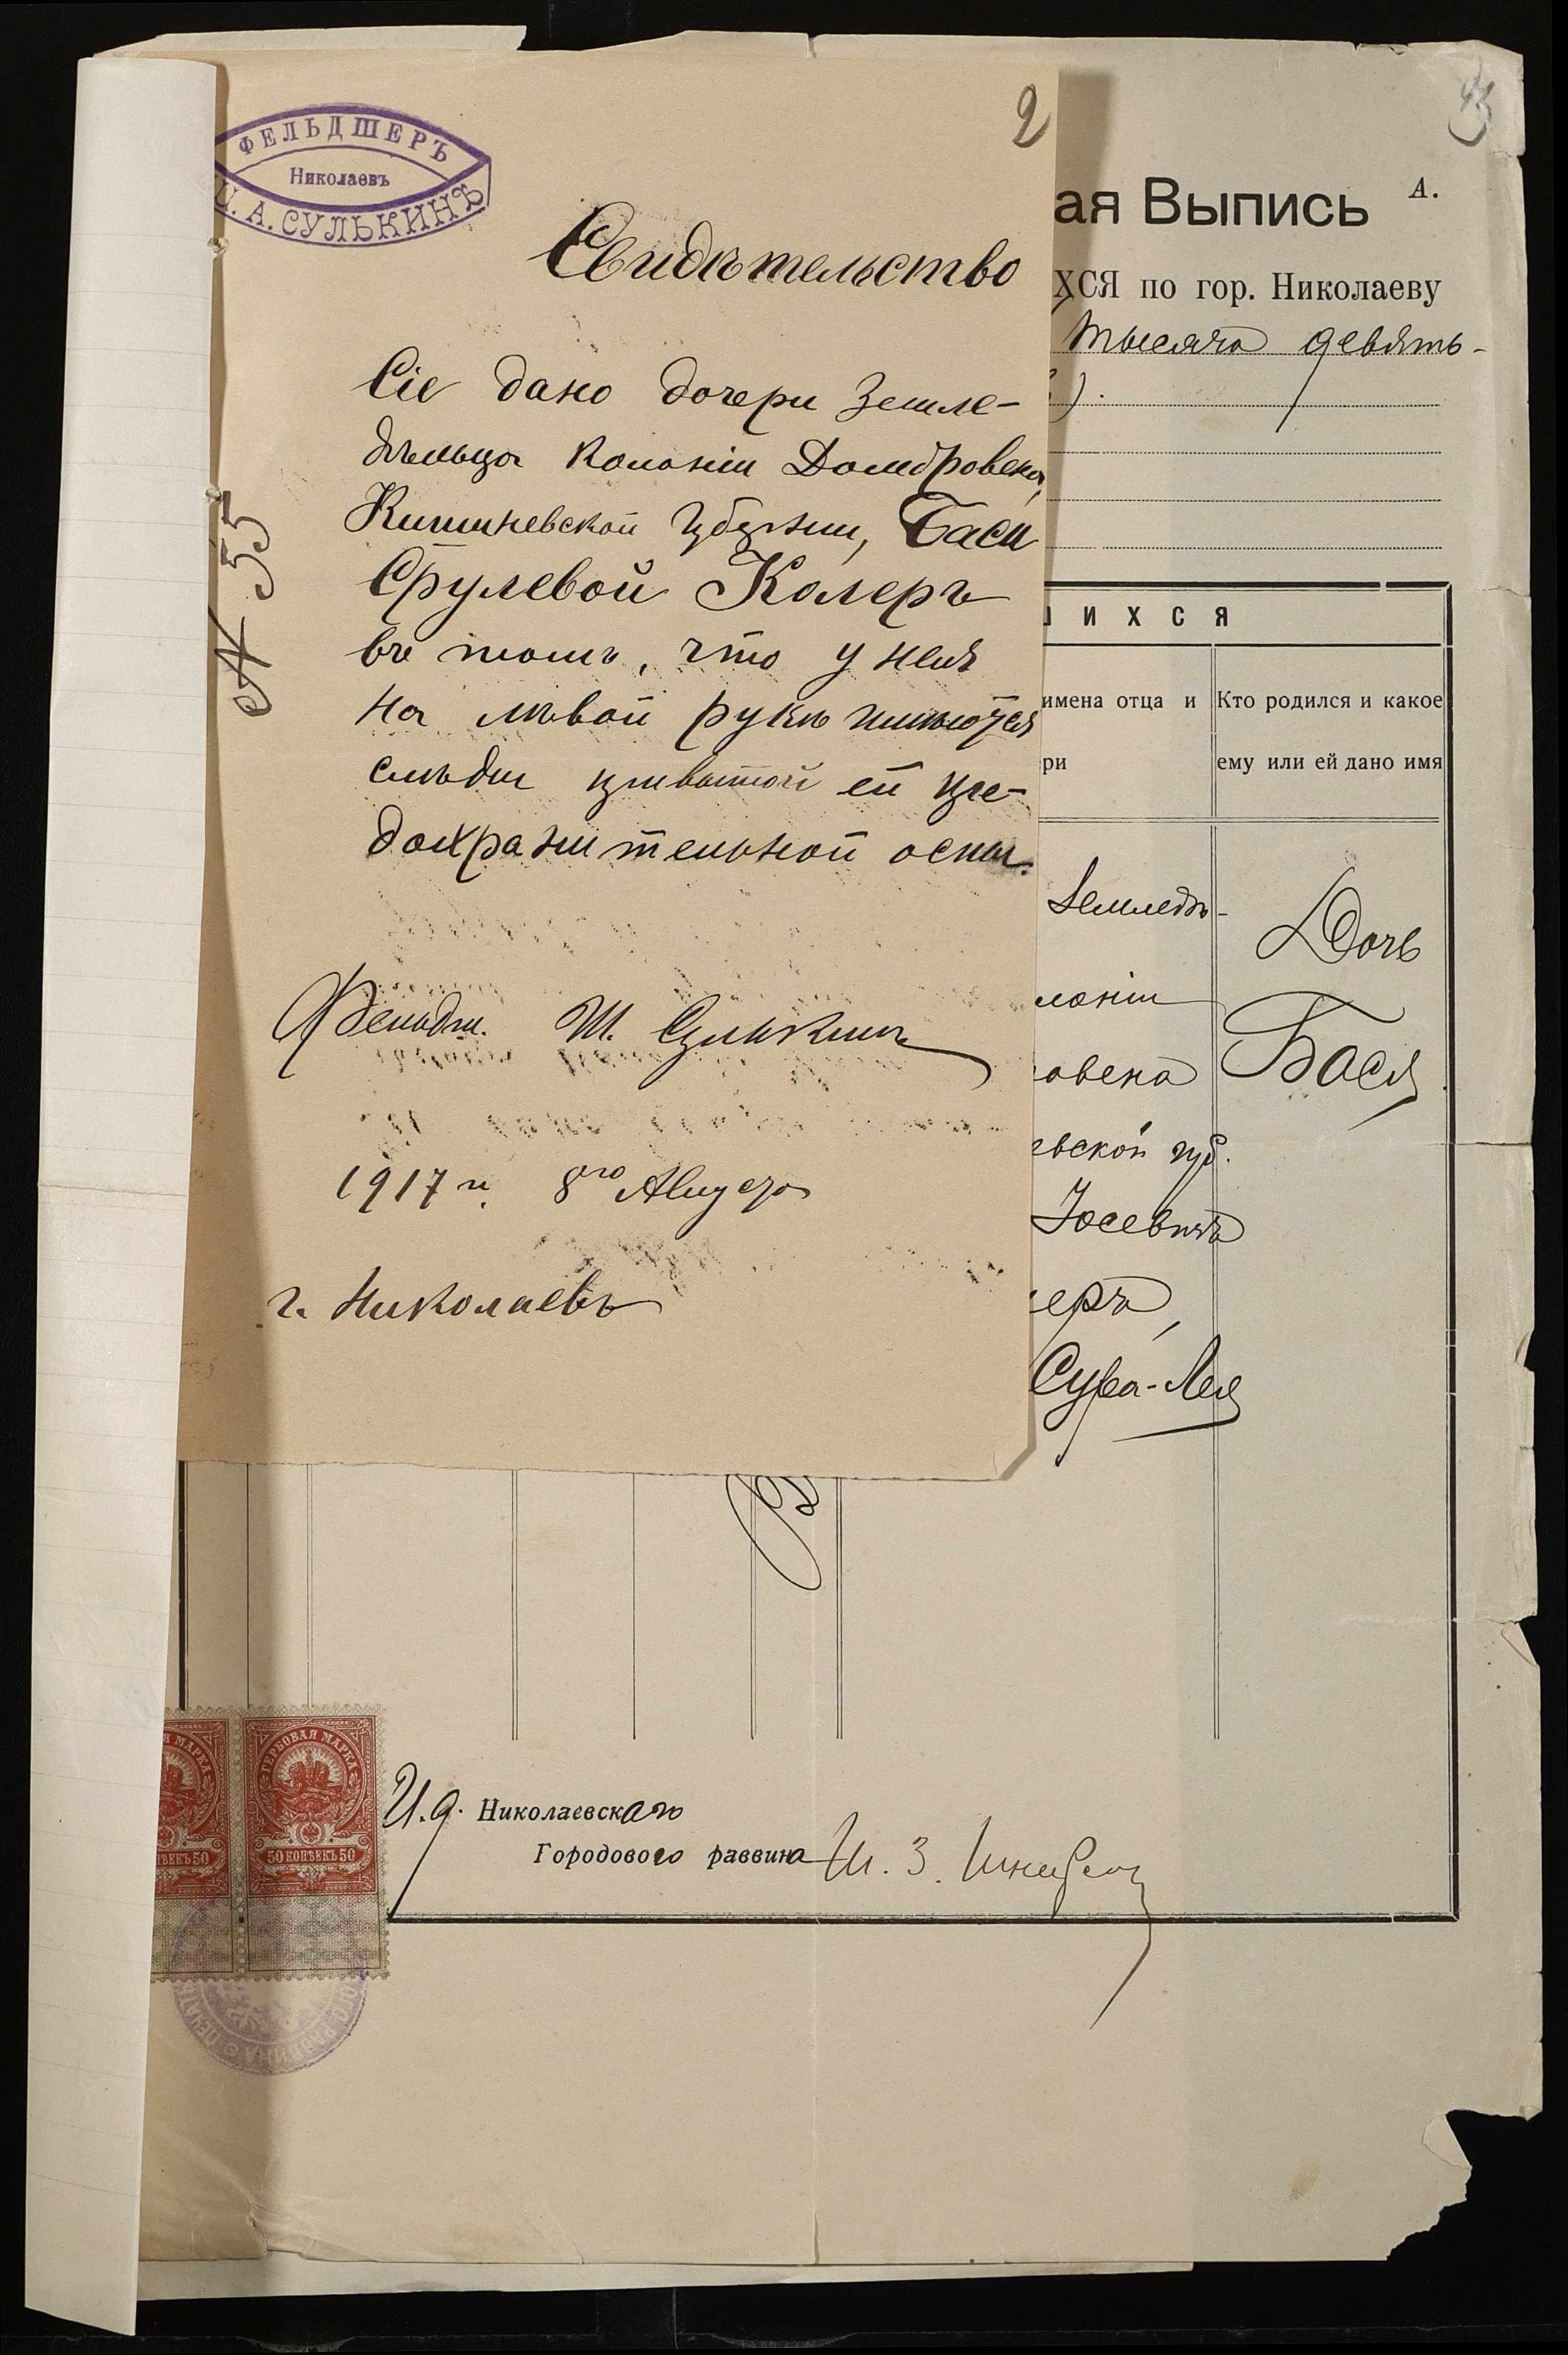 2
ФЕЛЬДШЕРЪ
Николаевъ
А. СУЛЬКИНЪ
№ 55
Свидѣтельство
Сіе дано дочери земле-
дѣльца колоніи Домбровена,
Кишиневской губерніи, Баси
Срулевой Колеръ
въ томъ, что у нея
на лѣвой рукѣ имѣются
слѣды привитой ей пре-
дохранительной оспы.
Фельдш. Ш. Сулькинъ
1917 г. 8го Августа
г. Николаевъ
ая Выпись А.
ХСЯ по гор. Николаеву
тысяча девять-
).
ИХСЯ
имена отца и
ри
Кто родился и какое
ему или ей дано имя
Земледѣ-
лоніи
овена
евской губ.
Іосевичъ
еръ,
Сура-Лея
Дочь
Бася
ГЕРБОВАЯ МАРКА
50 КОПѢЕКЪ 50
И.д. Николаевскаго
Городового раввина Ш. З.